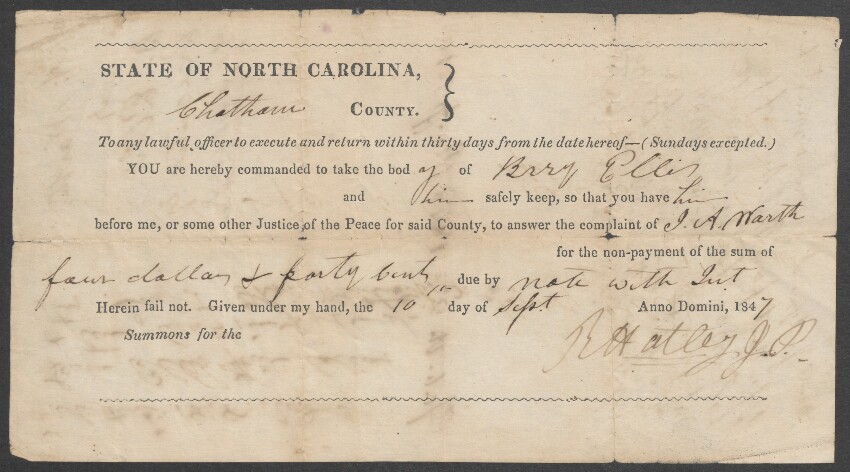 STATE OF NORTH CAROLINA,
Chatham COUNTY.
To any lawful officer to execute and return within thirty days from the date hereof—(Sundays excepted.)
YOU are hereby commanded to take the bod y of Brry Ellis
and him safely keep, so that you have him
before me, or some other Justice of the Peace for said County, to answer the complaint of J. A. Warth
for the non-payment of the sum of
four dollars & forty cents due by note with Int
Herein fail not. Given under my hand, the 10 day of Sept Anno Domini, 1847
Summons for the
R Hatley J.P.